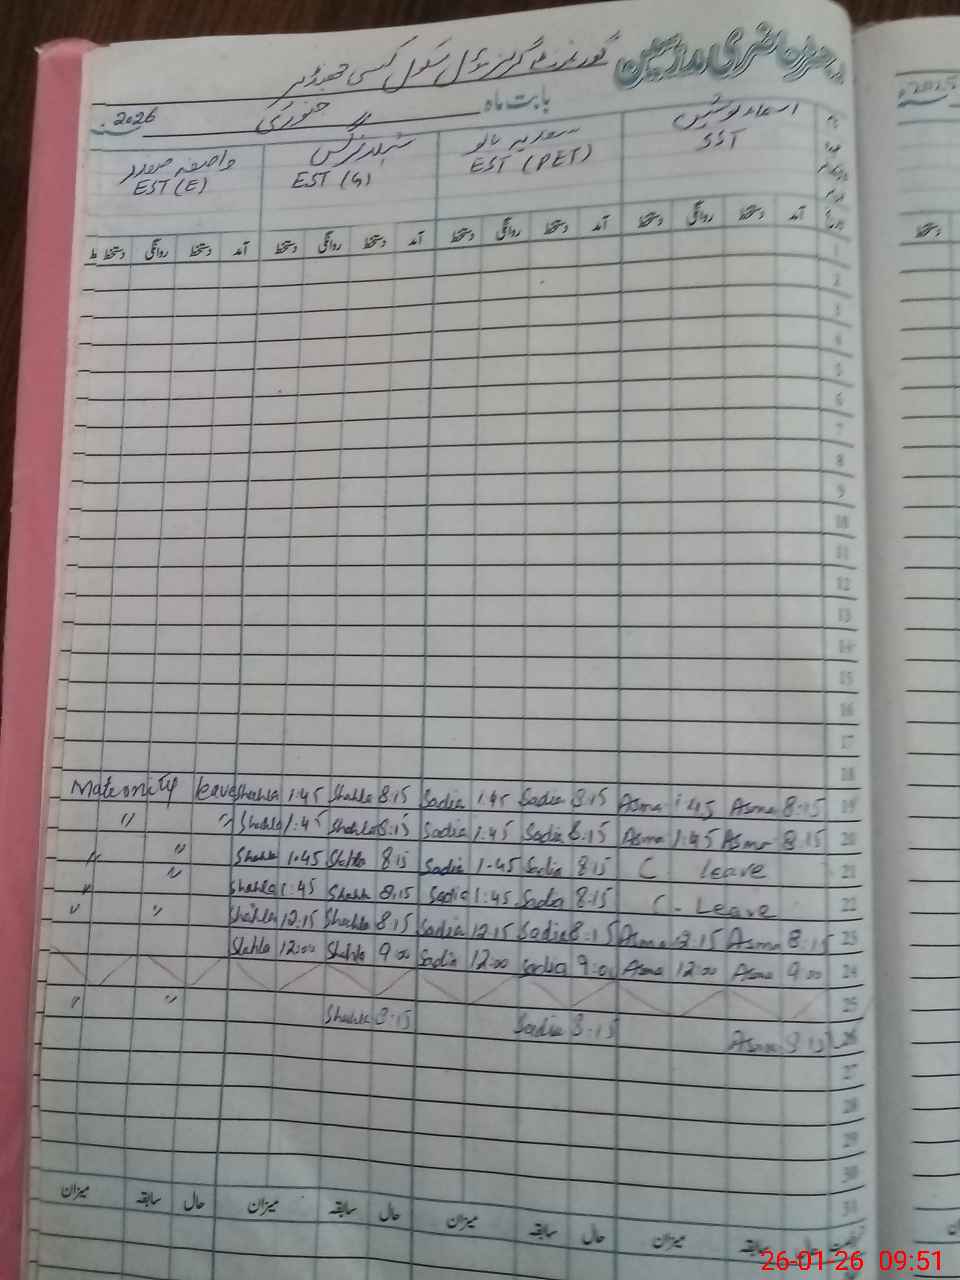 رجسٹر حاضری مدرسین گورنمنٹ گرلز مڈل سکول
بابت ماہ جنوری 2026
اسماء نوشین SST
سعدیہ بانو EST (PET)
شہلا نرگس EST (G)
واصفہ صفدر EST (E)
آمد دستخط روانگی دستخط آمد دستخط روانگی دستخط آمد دستخط روانگی دستخط آمد دستخط روانگی دستخط
1
2
3
4
5
6
7
8
9
10
11
12
13
14
15
16
17
18
Maternity leave Shahla 1:45 Shahla 8:15 Sadia 1:45 Sadia 8:15 Asma 1:45 Asma 8:15 19
" " Shahla 1:45 Shahla 8:15 Sadia 1:45 Sadia 8:15 Asma 1:45 Asma 8:15 20
" " Shahla 1:45 Shahla 8:15 Sadia 1:45 Sadia 8:15 C leave 21
" " Shahla 1:45 Shahla 8:15 Sadia 1:45 Sadia 8:15 C - Leave 22
" " Shahla 12:15 Shahla 8:15 Sadia 12:15 Sadia 8:15 Asma 8:15 Asma 8:15 23
Shahla 12:00 Shahla 9:00 Sadia 12:00 Sadia 9:00 Asma 12:00 Asma 9:00 24
25
" " Shahla 8:15 Sadia 8:15 Asma 8:15 26
27
28
29
30
31
حال سابقہ میزان حال سابقہ میزان حال سابقہ میزان حال سابقہ میزان
26-01-26 09:51